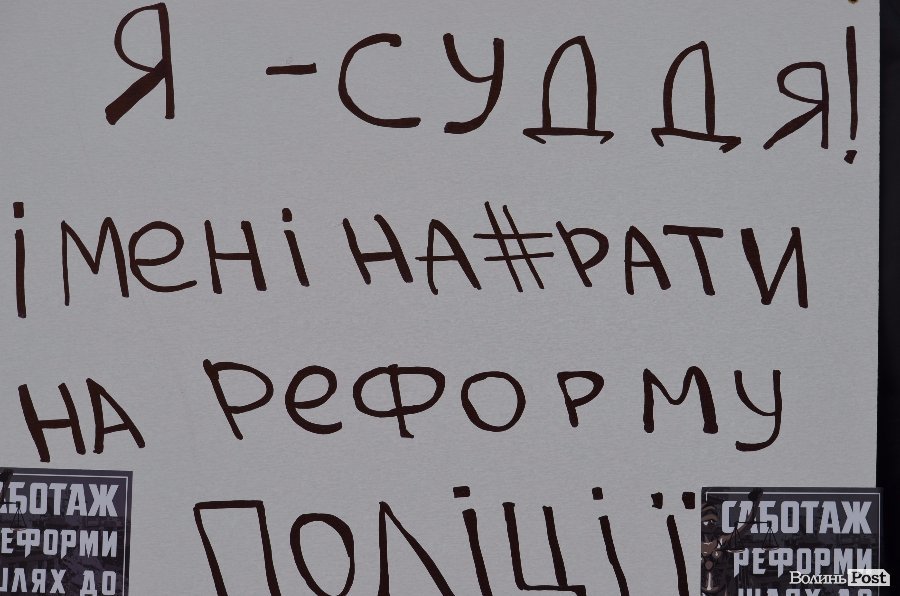 Я - СУДДЯ!
І МЕНІ НА#РАТИ
НА РЕФОРМУ
ПОЛІЦІЇ
САБОТАЖ
РЕФОРМИ
ШЛЯХ ДО
САБОТАЖ
РЕФОРМИ
ШЛЯХ ДО
ВолиньPost